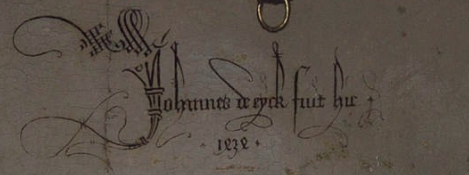 Johannes de eyck fuit hic
.1434.